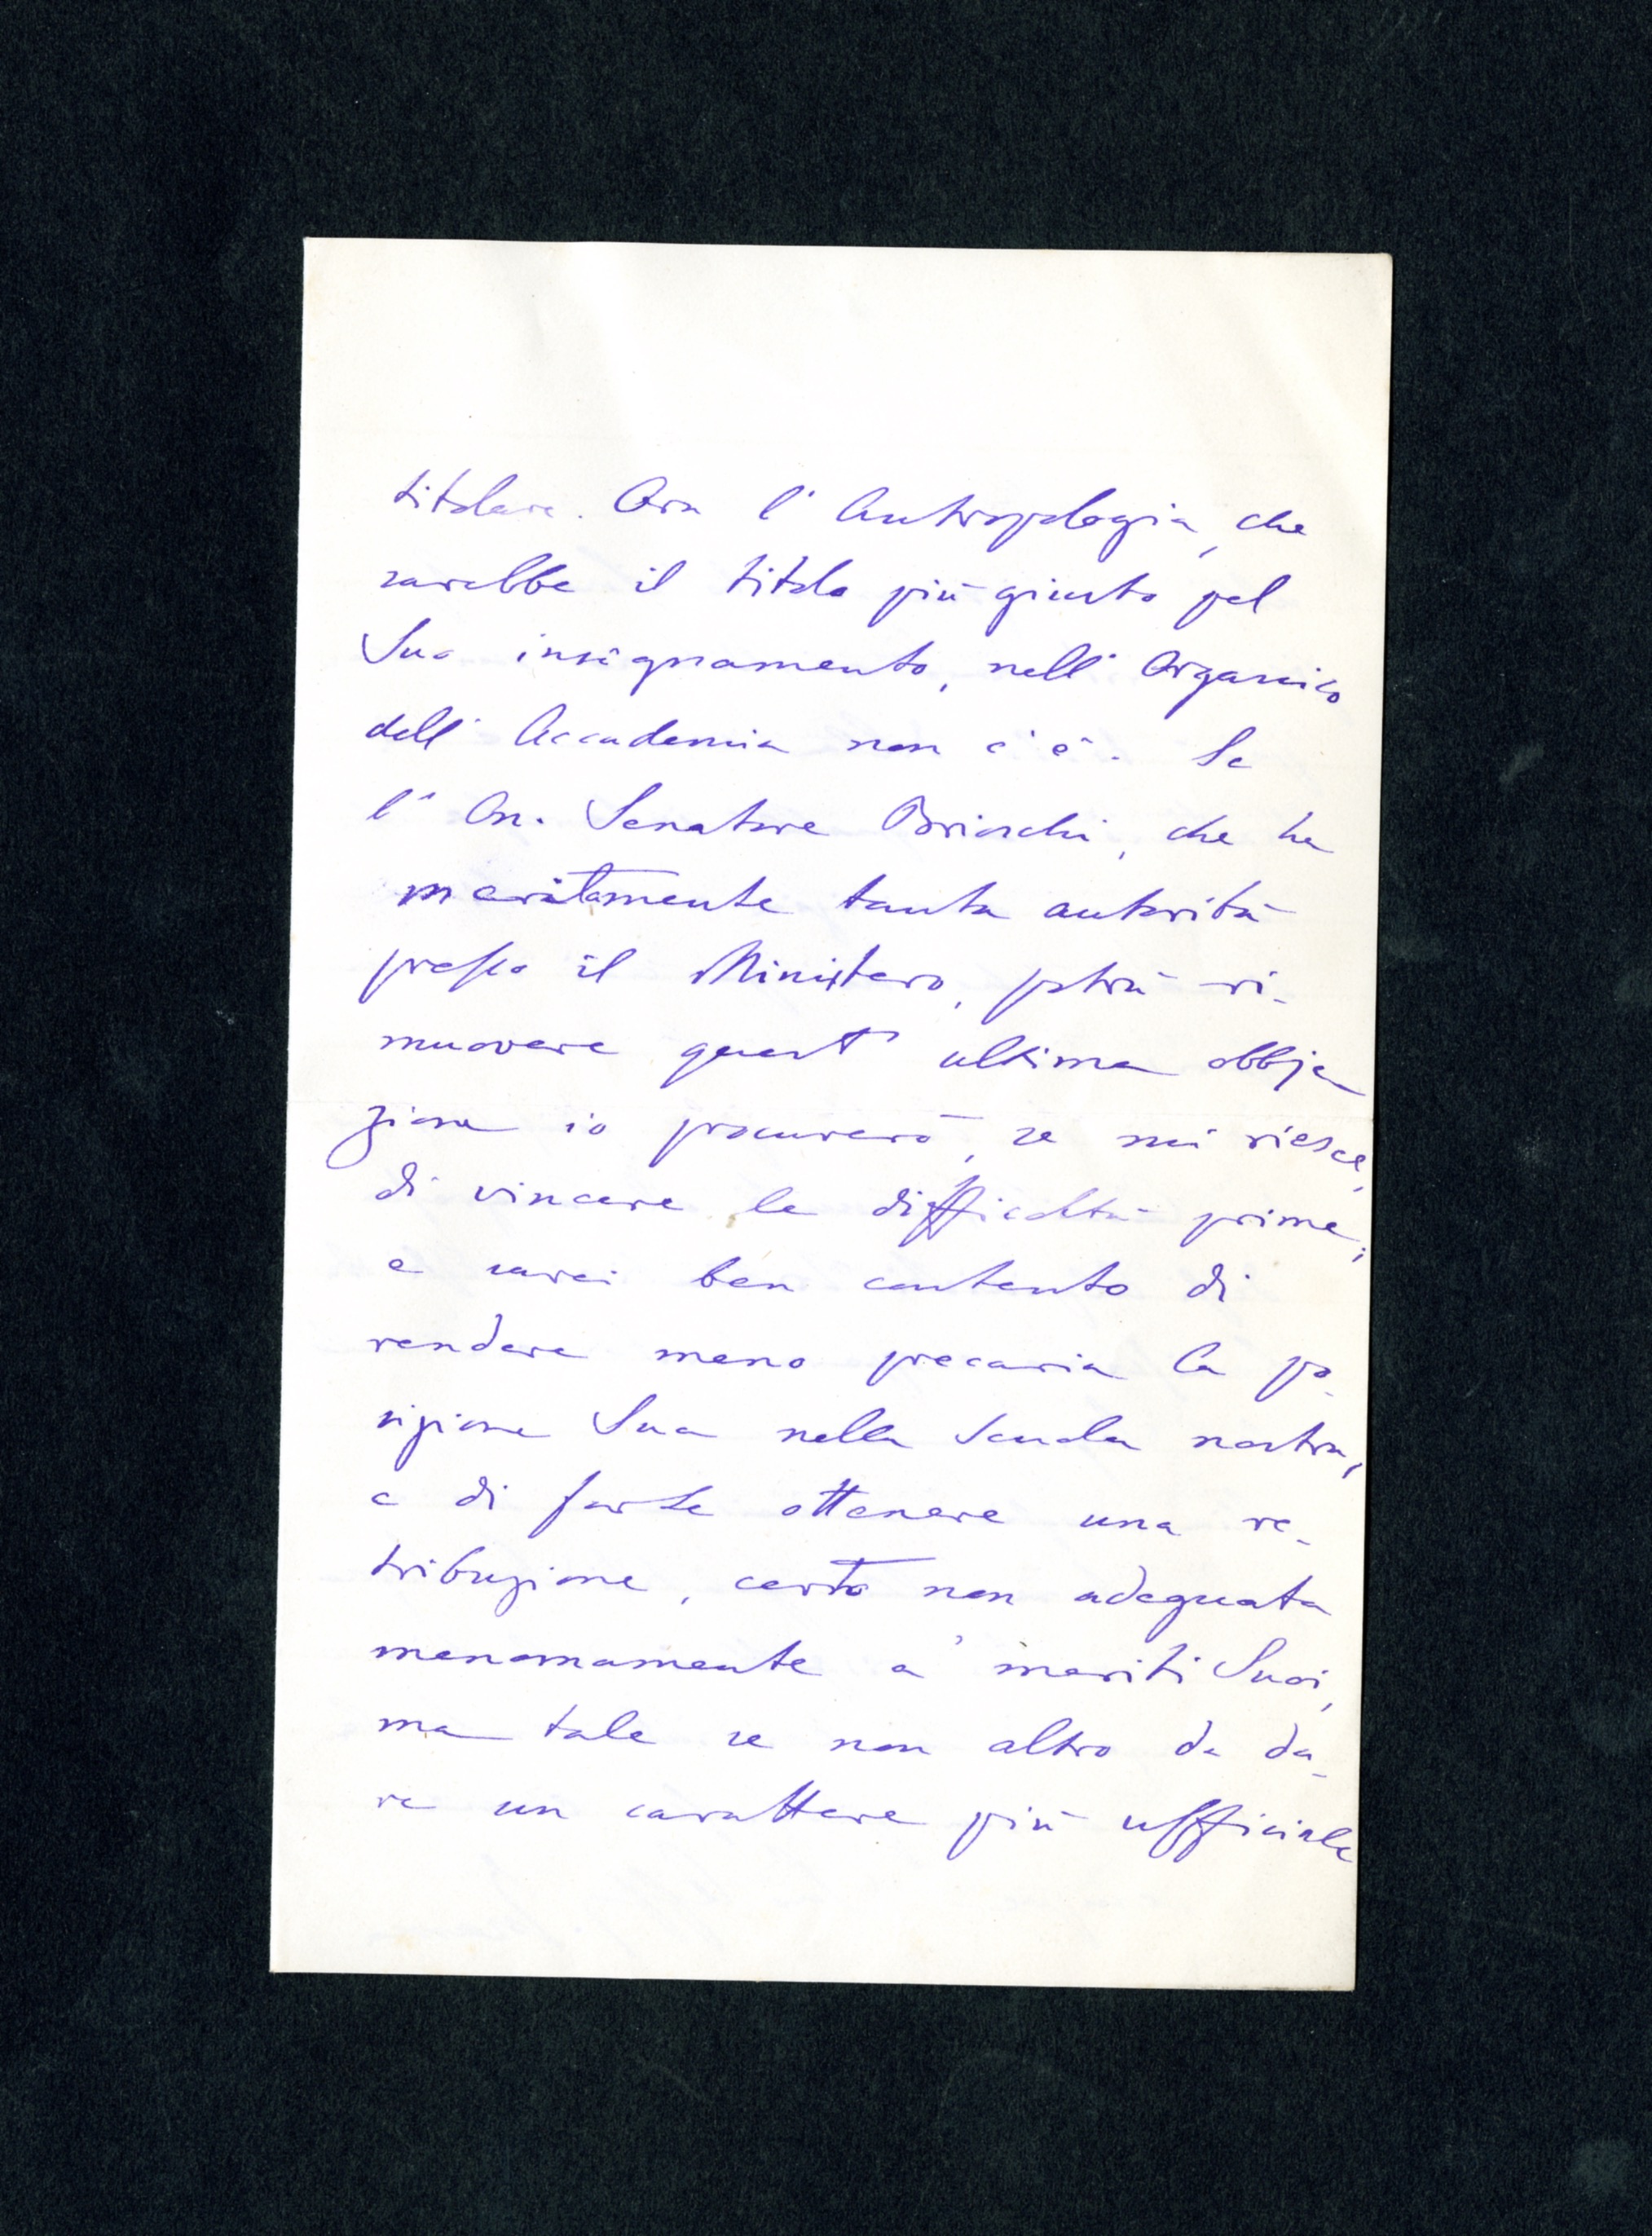 titolare. Ora l'Antropologia, che
sarebbe il titolo più giusto pel
Suo insegnamento, nell'Organico
dell'Accademia non c'è. Se
l'On. Senatore Brioschi, che ha
meritamente tanta autorità
presso il Ministero, potrà ri-
muovere quest'ultima obbje
zione io procurerò, se mi riesce,
di vincere le difficoltà prime;
e sarei ben contento di
rendere meno precaria la po-
sizione Sua nella Scuola nostra,
e di farLe ottenere una re-
tribuzione, certo non adeguata
menomamente a' meriti Suoi,
ma tale se non altro da da-
re un carattere più ufficiale